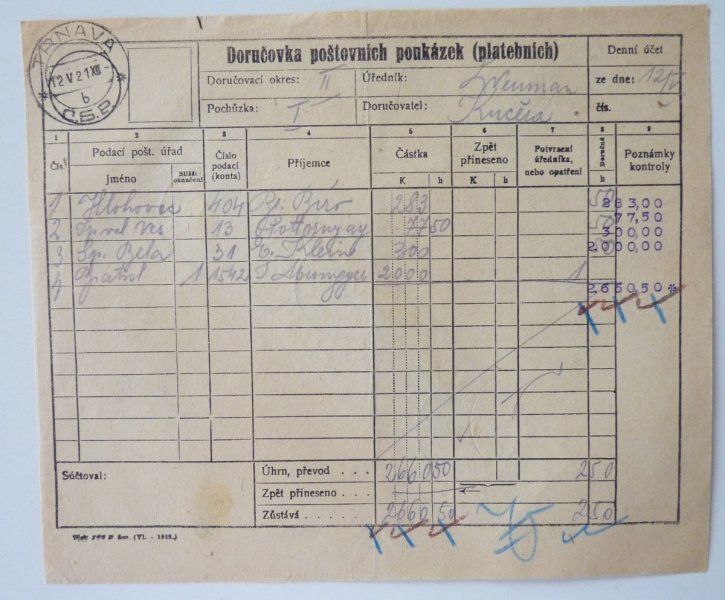 TRNAVA
12 V 21 XII
b
Č.S.P.
Doručovka poštovních poukázek (platebních)
Denní účet
Doručovací okres: II
Úředník:
ze dne: 12/V
Pochůzka: I
Doručovatel: Kučera
čís.
1 2 3 4 5 6 7 8 9
Čís.
Podací pošt. úřad
Jméno
Bližší označení
Číslo podací (konta)
Příjemce
Částka
K h
Zpět přineseno
K h
Potvrzení úředníka, nebo opatření
Doručné
h
Poznámky kontroly
1 Hlohovec 404 Biro 283 50 283,00
2 13 77 50 50 77,50
3 Sp. Bela 31 E. Klein 300 300,00
4 Bratisl 1 1542 2000 1 2.000,00
2.660,50 *
Súčtoval:
Úhrn, převod . . . 2660 50 250
Zpět přineseno . . .
Zůstává . . . . . . 2660 50 250